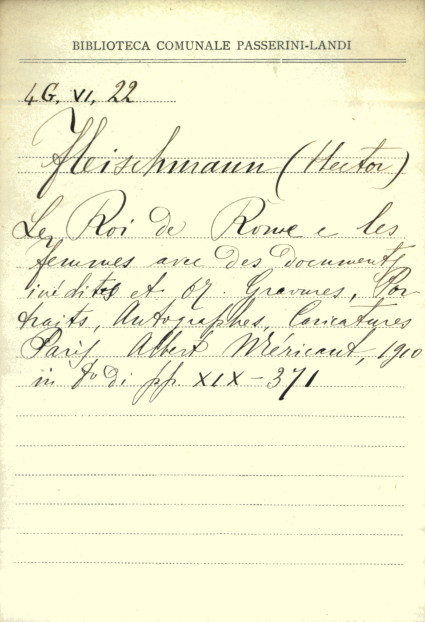 BIBLIOTECA COMUNALE PASSERINI-LANDI
4G. VI. 22
Fleischmann (Hector)
Le Roi de Rome e les
femmes avec des documents
inédites et 67. Gravures, Por
traits, Autographes, Caricatures
Paris, Albert Méricant, 1910
in 8º di pp. XIX-371